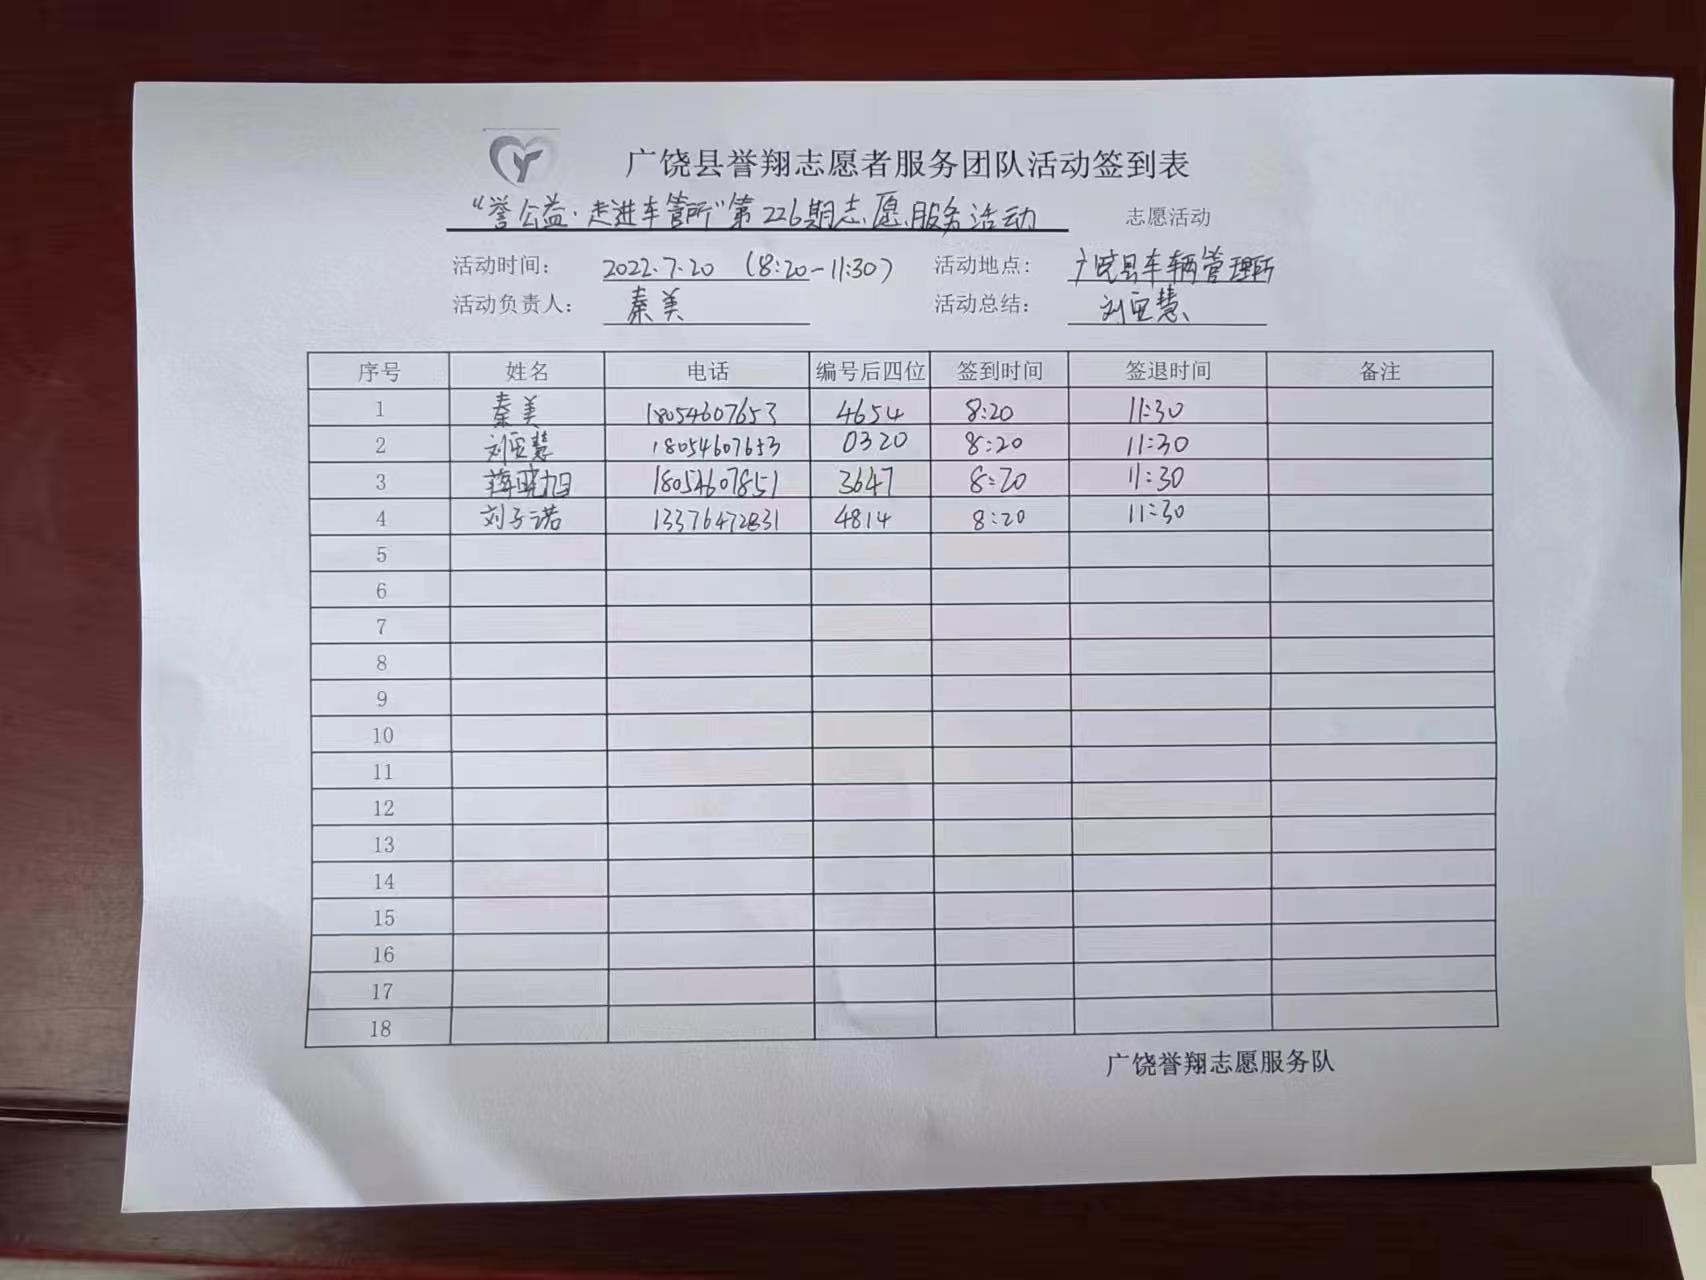 广饶县誉翔志愿者服务团队活动签到表
“誉公益·走进车管所”第226期志愿服务活动 志愿活动
活动时间： 2022.7.20 (8:20-11:30) 活动地点： 广饶县车辆管理所
活动负责人： 秦美 活动总结： 刘亚慧
序号 姓名 电话 编号后四位 签到时间 签退时间 备注
1 秦美 18054607653 4654 8:20 11:30
2 刘亚慧 18054607653 0320 8:20 11:30
3 蒋晓旭 18054607851 3647 8:20 11:30
4 刘子诺 13376472831 4814 8:20 11:30
5
6
7
8
9
10
11
12
13
14
15
16
17
18
广饶誉翔志愿服务队